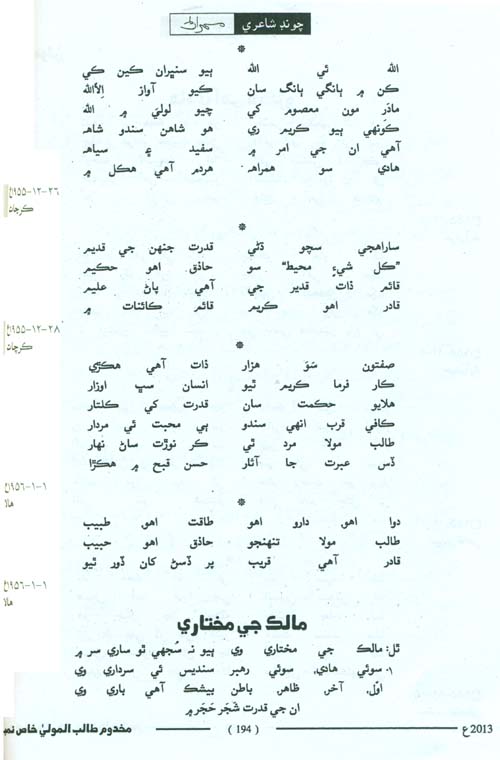 چونڊ شاعري مهراڻ
*
الله ئي الله ٻيو سنڀران ڪين ڪي
ڪن ۾ ٻانگي ٻانگ سان ڪيو آواز اِلاّالله
مادَر مون معصوم کي چيو لوليَ ۾ الله
ڪونهي ٻيو ڪريم ري هو شاهن سندو شاهه
آهي ان جي امر ۾ سفيد ۽ سياهه
هادي سو همراهه هردم آهي هڪل ۾
٢٦-١٢-١٩٥٥ع
ڪرچات
*
ساراهجي سچو ڌڻي قدرت جنهن جي قديم
”ڪل شيءٍ محيط“ سو حاذق اهو حڪيم
قائم ذات قدير جي آهي پاڻ عليم
قادر اهو ڪريم قائم ڪائنات ۾
٢٨-١٢-١٩٥٥ع
ڪرچات
*
صفتون سَوَ هزار ذات آهي هڪڙي
ڪار فرما ڪريم ٿيو انسان سڀ اوزار
هلايو حڪمت سان قدرت کي ڪلتار
ڪافي قرب انهي سندو ٻي محبت ٿي مردار
طالب مولا مرد ٿي ڪر نوڙت ساڻ نهار
ڏس عبرت جا آثار حسن قبح ۾ هڪڙا
١-١-١٩٥٦ع
هالا
*
دوا اهو دارو اهو طاقت اهو طبيب
طالب مولا تنهنجو حاذق اهو حبيب
قادر آهي قريب پر ڏسڻ کان ڏور ٿيو
١-١-١٩٥٦ع
هالا
مالڪ جي مختاري
ٿل: مالڪ جي مختاري وي ٻيو نه سُجهي ٿو ساري سر ۾
١. سوئي هادي، سوئي رهبر سنديس ئي سرداري وي
اوّل، آخر، ظاهر، باطن بيشڪ آهي ٻاري وي
ان جي قدرت شَجَر حَجَر ۾
2013ع ( 194 ) مخدوم طالب الموليٰ خاص نمب